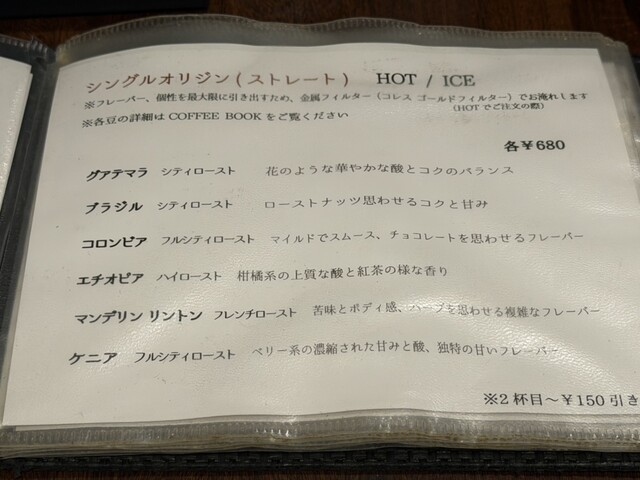 シングルオリジン(ストレート) HOT / ICE
※フレーバー、個性を最大限に引き出すため、金属フィルター(コレス ゴールドフィルター)でお淹れします
(HOTでご注文の際)
※各豆の詳細は COFFEE BOOK をご覧ください
各¥680
グアテマラ シティロースト 花のような華やかな酸とコクのバランス
ブラジル シティロースト ローストナッツ思わせるコクと甘み
コロンビア フルシティロースト マイルドでスムース、チョコレートを思わせるフレーバー
エチオピア ハイロースト 柑橘系の上質な酸と紅茶の様な香り
マンデリン リントン フレンチロースト 苦味とボディ感、ハーブを思わせる複雑なフレーバー
ケニア フルシティロースト ベリー系の濃縮された甘みと酸、独特の甘いフレーバー
※2杯目～¥150引き